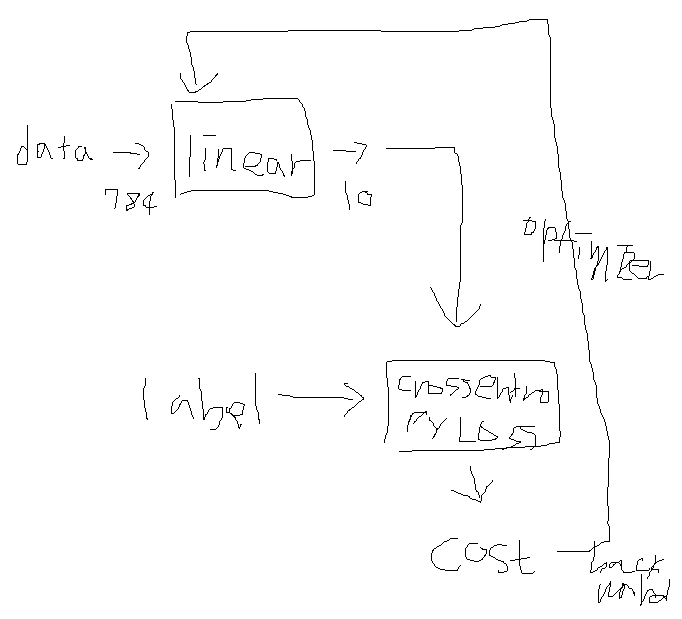 data → linear →
784
10
optimizer
label → crossentro
py Loss
cost
back